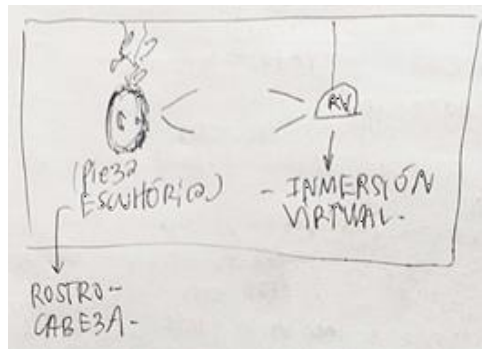 RV
(Pieza
ESCULTÓRICA)
- INMERSIÓN
VIRTUAL-
ROSTRO-
CABEZA-